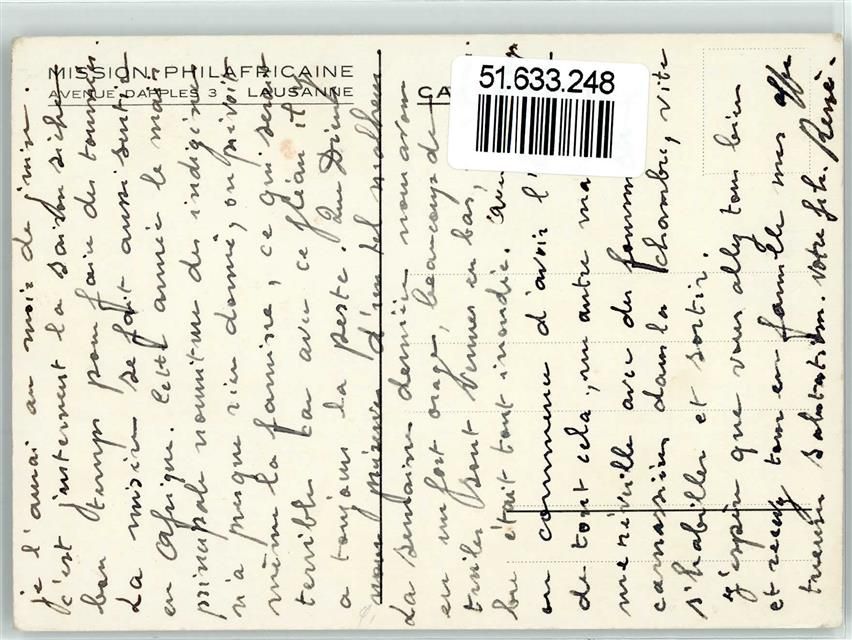 MISSION PHILAFRICAINE
AVENUE DAPPLES 3 LAUSANNE
CA
51.633.248
je l'aurai au mois de juin.
c'est justement la saison sèche
bon temps pour faire des tournées.
La misère se fait aussi sentir
en Afrique. Cette année le maïs
principale nourriture des indigènes
n'a presque rien donné, on prévoit
même la famine, ce qui serait
terrible car avec ce fléau il y
a toujours la peste. Que Dieu
nous préserve d'un tel malheur
La semaine dernière nous avons
eu un fort orage, beaucoup de
tuiles sont venues en bas,
était tout inondée.
on commence d'avoir l'
de tout cela, un autre ma
me réveille avec des fourm
carnassières dans la chambre, vite
s'habiller et sortir.
J'espère que vous allez tous bien
et recevez tous en famille mes
salutations. Votre fils. René.